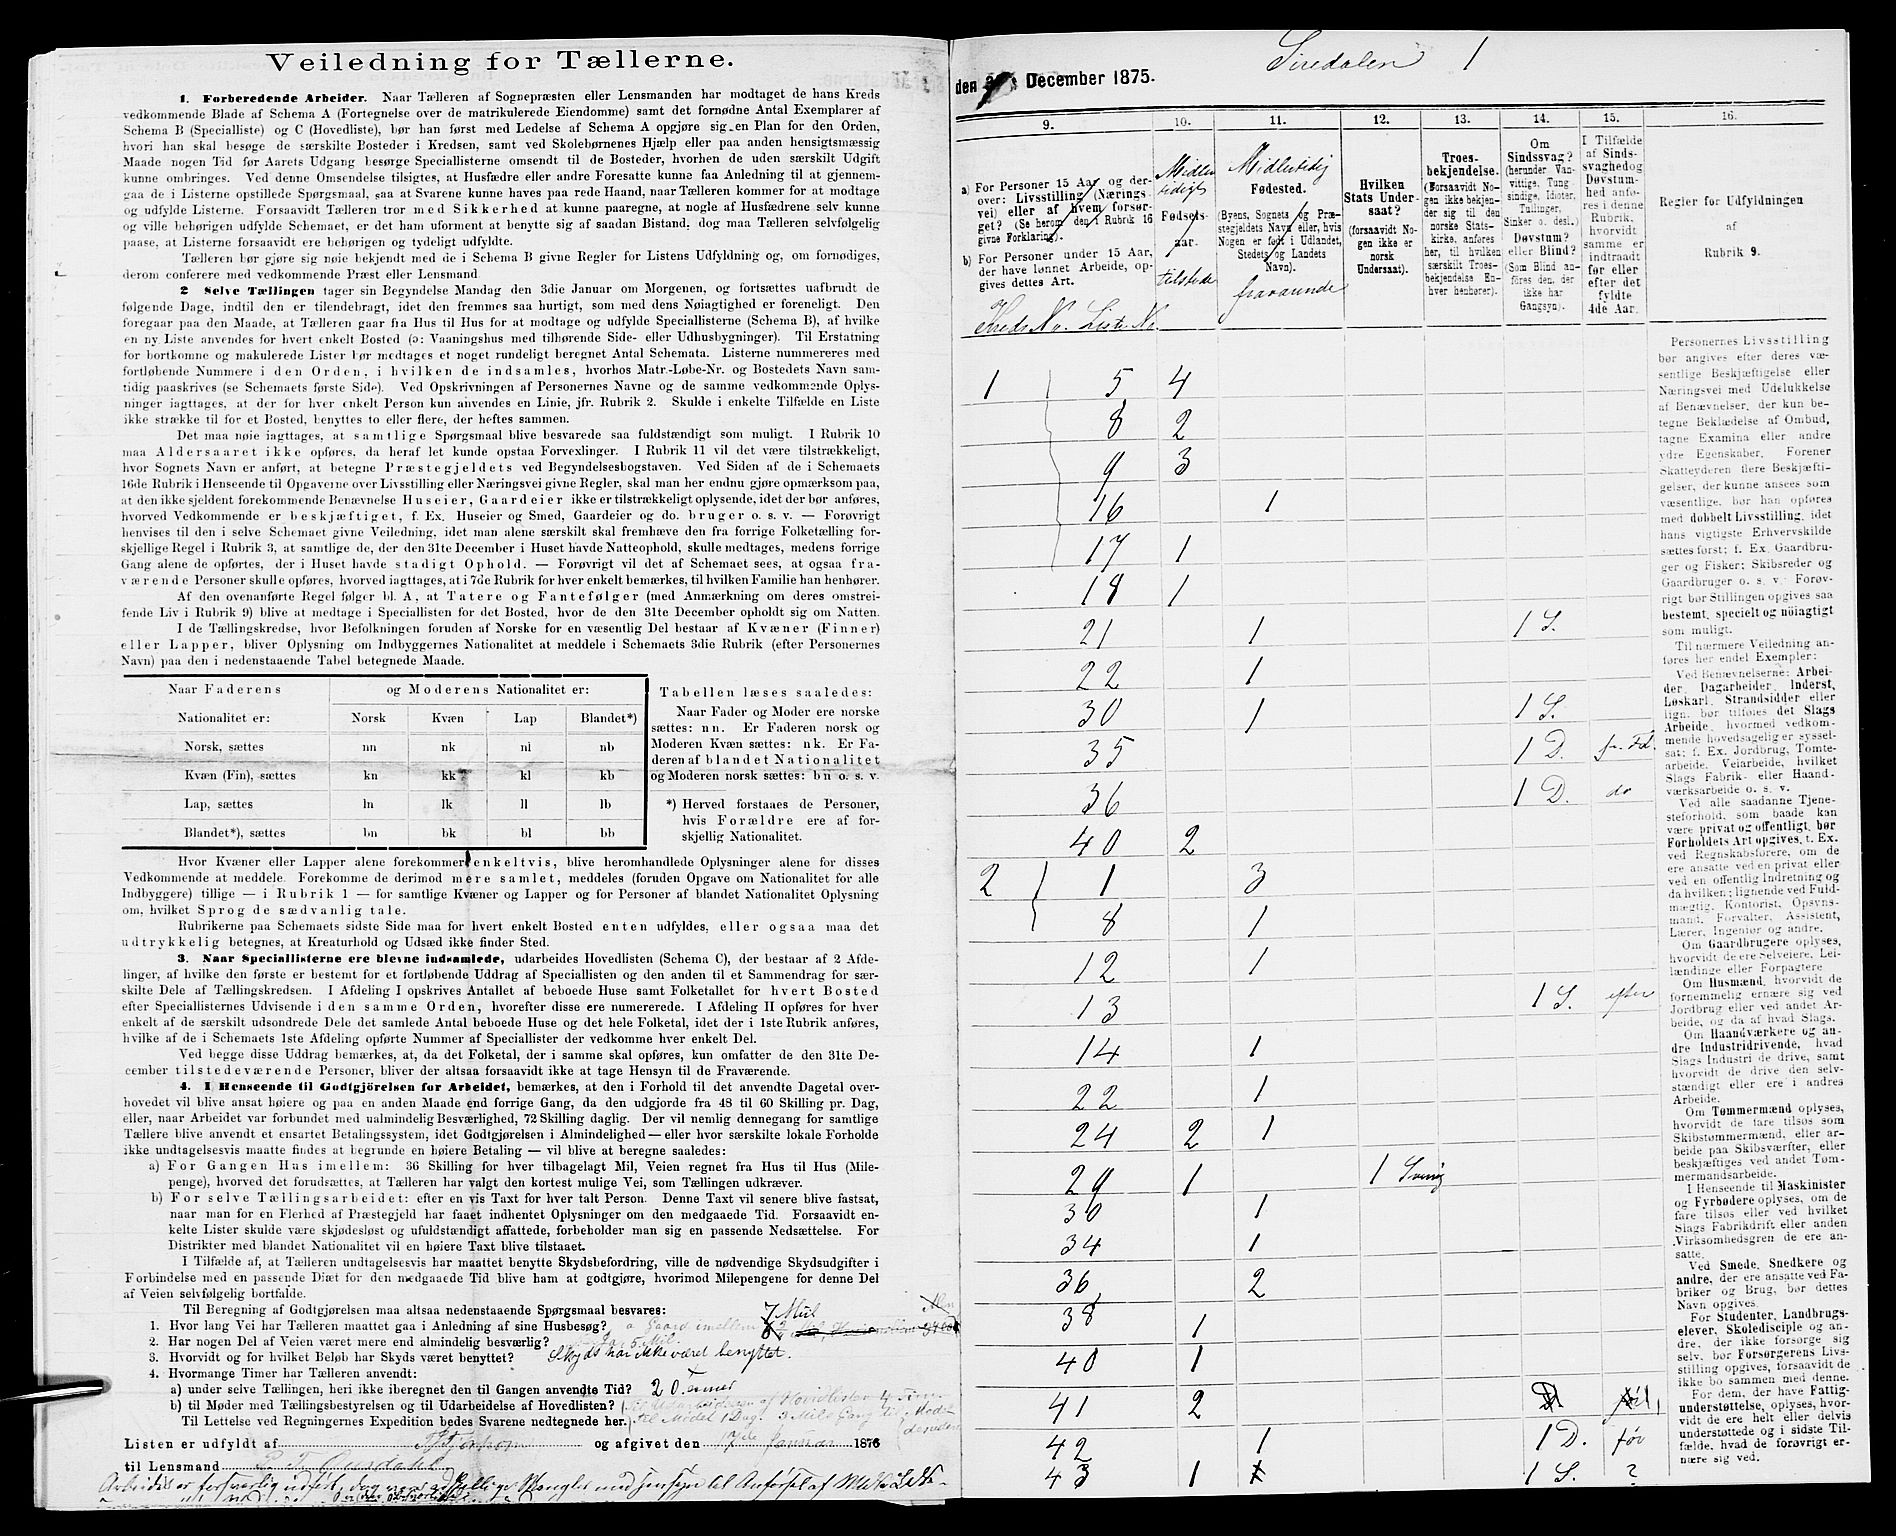 Veiledning for Tællerne.
1. Forberedende Arbeider. Naar Tælleren af Sognepræsten eller Lensmanden har modtaget de hans Kreds
vedkommende Blade af Schema A (Fortegnelse over de matrikulerede Eiendomme) samt det fornødne Antal Exemplarer af
Schema B (Specialliste) og C (Hovedliste), bør han først med Ledelse af Schema A opgjøre sig en Plan for den Orden,
hvori han skal besøge de særskilte Bosteder i Kredsen, samt ved Skolebørnenes Hjælp eller paa anden hensigtsmæssig
Maade nogen Tid før Aarets Udgang besørge Speciallisterne omsendt til de Bosteder, hvorhen de uden særskilt Udgift
kunne ombringes. Ved denne Omsendelse tilsigtes, at Husfædre eller andre Foresatte kunne faa Anledning til at gjennem-
gaa de i Listerne opstillede Spørgsmaal, saa at Svarene kunne haves paa rede Haand, naar Tælleren kommer for at modtage
og udfylde Listerne. Forsaavidt Tælleren tror med Sikkerhed at kunne paaregne, at nogle af Husfædrene selv kunne
og ville behørigen udfylde Schemaet, er det ham uforment at benytte sig af saadan Bistand, dog maa Tælleren selvfølgelig
paase, at Listerne forsaavidt ere behørigen og tydeligt udfyldte.
Tælleren bør gjøre sig nøie bekjendt med de i Schema B givne Regler for Listens Udfyldning og, om fornødiges,
derom conferere med vedkommende Præst eller Lensmand
2 Selve Tællingen tager sin Begyndelse Mandag den 3die Januar om Morgenen, og fortsættes uafbrudt de
følgende Dage, indtil den er tilendebragt, idet den fremmes saa hurtigt, som med dens Nøiagtighed er foreneligt. Den
foregaar paa den Maade, at Tælleren gaar fra Hus til Hus for at modtage og udfylde Speciallisterne (Schema B), af hvilke
en ny Liste anvendes for hvert enkelt Bosted (ɔ: Vaaningshus med tilhørende Side- eller Udhusbygninger). Til Erstatning
for bortkomne og makulerede Lister bør medtages et noget rundeligt beregnet Antal Schemata. Listerne nummereres med
fortløbende Nummere i den Orden, i hvilken de indsamles, hvorhos Matr.-Løbe-Nr. og Bostedets Navn sam-
tidig paaskrives (se Schemaets første Side). Ved Opskrivningen af Personernes Navne og de samme vedkommende Oplys-
ninger iagttages, at der for hver enkelt Person kun anvendes en Linie, jfr. Rubrik 2. Skulde i enkelte Tilfælde en Liste
ikke strække til for et Bosted, benyttes to eller flere, der heftes sammen.
Det maa nøie iagttages, at samtlige Spørgsmaal blive besvarede saa fuldstændigt som muligt. I Rubrik 10
maa Aldersaaret ikke opføres, da heraf let kunde opstaa Forvexlinger. I Rubrik 11 vil det være tilstrækkeligt,
hvor Sognets Navn er anført, at betegne Præstegjeldets ved Begyndelsesbogstaven. Ved Siden af de i Schemaets
16de Rubrik i Henseende til Opgaverne over Livsstilling eller Næringsvei givne Regler, skal man her endnu gjøre opmærksom paa,
at den ikke sjeldent forekommende Benævnelse Huseier, Gaardeier ikke er tilstrækkeligt oplysende, idet der bør anføres,
hvorved Vedkommende er beskjæftiget, f. Ex. Huseier og Smed, Gaardeier og do. bruger o. s. v. — Forøvrigt
henvises til den i selve Schemaet givne Veiledning, idet man alene særskilt skal fremhæve den fra forrige Folketælling for-
skjellige Regel i Rubrik 3, at samtlige de, der den 31te December i Huset havde Natteophold, skulle medtages, medens forrige
Gang alene de opførtes, der i Huset havde stadigt Ophold. — Forøvrigt vil det af Schemaet sees, at ogsaa fra-
værende Personer skulle opføres, hvorved iagttages, at i 7de Rubrik for hver enkelt bemærkes, til hvilken Familie han henhører.
Af den ovenanførte Regel følger bl. A, at Tatere og Fantefølger (med Anmærkning om deres omstrei-
fende Liv i Rubrik 9) blive at medtage i Speciallisten for det Bosted, hvor de den 31te December opholdt sig om Natten.
I de Tællingskredse, hvor Befolkningen foruden af Norske for en væsentlig Del bestaar af Kvæner (Finner)
eller Lapper, bliver Oplysning om Indbyggernes Nationalitet at meddele i Schemaets 3die Rubrik (efter Personernes
Navn) paa den i nedenstaaende Tabel betegnede Maade.
Naar Faderens og Moderens Nationalitet er:
Nationalitet er: Norsk Kvæn Lap Blandet*)
Norsk, sættes nn nk nl nb
Kvæn (Fin), sættes kn kk kl kb
Lap, sættes ln lk ll lb
Blandet*), sættes bn bk bl bb
Tabellen læses saaledes:
Naar Fader og Moder ere norske
sættes: nn. Er Faderen norsk og
Moderen Kvæn sættes: nk. Er Fa-
deren af blandet Nationalitet
og Moderen norsk sættes: bn o. s. v.
*) Herved forstaaes de Personer,
hvis Forældre ere af for-
skjellig Nationalitet.
Hvor Kvæner eller Lapper alene forekommer enkeltvis, blive heromhandlede Oplysninger alene for disses
Vedkommende at meddele. Forekomme de derimod mere samlet, meddeles (foruden Opgave om Nationalitet for alle
Indbyggere) tillige — i Rubrik 1 — for samtlige Kvæner og Lapper og for Personer af blandet Nationalitet Oplysning
om, hvilket Sprog de sædvanlig tale.
Rubrikerne paa Schemaets sidste Side maa for hvert enkelt Bosted enten udfyldes, eller ogsaa maa det
udtrykkelig betegnes, at Kreaturhold og Udsæd ikke finder Sted.
3. Naar Speciallisterne ere blevne indsamlede, udarbeides Hovedlisten (Schema C), der bestaar af 2 Afde-
linger, af hvilke den første er bestemt for et fortløbende Uddrag af Speciallisten og den anden til et Sammendrag for sær-
skilte Dele af Tællingskredsen. I Afdeling I opgives Antallet af beboede Huse samt Folketallet for hvert Bosted
efter Speciallisternes Udvisende i den samme Orden, hvorefter disse ere numererede. I Afdeling II opføres for hver
enkelt af de særskilt udsondrede Dele det samlede Antal beboede Huse og det hele Folketal, idet der i 1ste Rubrik anføres,
hvilke af de i Schemaets 1ste Afdeling opførte Nummer af Speciallister der vedkomme hver enkelt Del.
Ved begge disse Uddrag bemærkes, at, da det Folketal, der i samme skal opføres, kun omfatter de den 31te De-
cember tilstedeværende Personer, bliver der altsaa forsaavidt ikke at tage Hensyn til de Fraværende.
4. I Henseende til Godtgjörelsen for Arbeidet, bemærkes, at den i Forhold til det anvendte Dagetal over-
hovedet vil blive ansat høiere og paa en anden Maade end forrige Gang, da den udgjorde fra 48 til 60 Skilling pr. Dag,
eller, naar Arbeidet var forbundet med ualmindelig Besværlighed, 72 Skilling daglig. Der vil nemlig dennegang for samtlige
Tællere blive anvendt et ensartet Betalingssystem, idet Godtgjörelsen i Almindelighed — eller hvor særskilte lokale Forholde
ikke undtagelsesvis maatte findes at begrunde en høiere Betaling — vil blive at beregne saaledes:
a) For Gangen Hus imellem: 36 Skilling for hver tilbagelagt Mil, Veien regnet fra Hus til Hus (Mile-
penge), hvorved det forudsættes, at Tælleren har valgt den kortest mulige Vei, som Tællingen udkræver.
b) For selve Tællingsarbeidet: efter en vis Taxt for hver talt Person. Denne Taxt vil senere blive fastsat,
naar man for en Flerhed af Præstegjeld har faaet indhentet Oplysninger om den medgaaede Tid. Forsaavidt en-
kelte Lister skulde være skjødesløst og ufuldstændigt affattede, forbeholder man sig en passende Nedsættelse. For
Distrikter med blandet Nationalitet vil en høiere Taxt blive tilstaaet.
I Tilfælde af, at Tælleren undtagelsesvis har maattet benytte Skydsbefordring, ville de nødvendige Skydsudgifter i
Forbindelse med en passende Diæt for den medgaaede Tid blive ham at godtgjøre, hvorimod Milepengene for denne Del
af Veien selvfølgelig bortfalde.
Til Beregning af Godtgjörelsen maa altsaa nedenstaaende Spørgsmaal besvares:
1. Hvor lang Vei har Tælleren maattet gaa i Anledning af sine Husbesøg? a Gaard imellem 7 Mil
2. Har nogen Del af Veien været mere end almindelig besværlig? Ja 5 Mil
3. Hvorvidt og for hvilket Beløb har Skyds været benyttet? Skyds har ikke været benyttet.
4. Hvormange Timer har Tælleren anvendt:
a) under selve Tællingen, heri ikke iberegnet den til Gangen anvendte Tid? 20 Timer
b) til Møder med Tællingsbestyrelsen og til Udarbeidelse af Hovedlisten? Til Udarbeidelsen af Hovedlisten 4 Timer
Til Lettelse ved Regningernes Expedition bedes Svarene nedtegnede her. Til Mødet 1 Dag. 3 Mile Gang til Mødet
Listen er udfyldt af og afgivet den 17de Januar 1876
til Lensmand
Siredalen 1
den December 1875.
9. 10. 11. 12. 13. 14. 15. 16.
a) For Personer 15 Aar og der-
over: Livsstilling (Nærings-
vei) eller af hvem forsør-
get? (Se herom den i Rubrik 16
givne Forklaring).
b) For Personer under 15 Aar,
der have lønnet Arbeide, op-
gives dettes Art.
Kreds No. Liste No
Midler
tidigt
Fødsels-
aar.
tilstede
Midlertidig
Fødested.
(Byens, Sognets og Præ-
stegjeldets Navn eller, hvis
Nogen er født i Udlandet,
Stedets og Landets
Navn).
fraværende
Hvilken
Stats Under-
saat?
(forsaavidt No-
gen ikke er
norsk
Undersaat).
Troes-
bekjendelse.
(Forsaavidt No-
gen ikke bekjen-
der sig til den
norske Stats-
kirke, anføres
her, til hvilken
særskilt Troes-
bekjendelse En-
hver henhører).
Om
Sindssvag?
(herunder Van-
vittige, Tung-
sindige, Idioter,
Tullinger,
Sinker o. desl.)
Døvstum?
eller Blind?
(Som Blind an-
føres den, der
ikke har
Gangsyn).
I Tilfælde
af Sinds-
svaghed og
Døvstum-
hed anfø-
res i denne
Rubrik,
hvorvidt
samme er
indtraadt
før eller
efter det
fyldte
4de Aar.
Regler for Udfyldningen
af
Rubrik 9.
1 5 4
8 2
9 3
16 1
17 1
18 1
21 1 1 S.
22 1
30 1 1 S.
35 1 D.
36 1 D. do
40 2
2 1 3
8 1
12 1
13 1 S. efter
14 1
22 1
24 2 1
29 1 1 Svensk
30 1
34 1
36 2
38 1
40 1
41 2
42 1 1 D. før
43 1 1 S. ?
Personernes Livsstilling
bør angives efter deres væ-
sentlige Beskjæftigelse eller
Næringsvei med Udelukkelse
af Benævnelser, der kun be-
tegne Beklædelse af Ombud,
tagne Examina eller andre
ydre Egenskaber. Forener
Skatteyderen flere Beskjæfti-
gelser, der kunne ansees som
væsentlige, bør han opføres
med dobbelt Livsstilling, idet
hans vigtigste Erhvervskilde
sættes først; f. Ex. Gaardbru-
ger og Fisker; Skibsreder og
Gaardbruger o. s. v. Forøv-
rigt bør Stillingen opgives saa
bestemt, specielt og nöiagtigt
som muligt.
Til nærmere Veiledning an-
føres her endel Exempler:
Ved Benævnelserne: Arbei-
der, Dagarbeider, Inderst,
Løskarl, Strandsidder eller
lign. bør tilføies det Slags
Arbeide, hvormed vedkom-
mende hovedsagelig er syssel-
sat; f. Ex. Jordbrug, Tomte-
arbeide, Veiarbeide, hvilket
Slags Fabrik- eller Haand-
værksarbeide o. s. v.
Ved alle saadanne Tjene-
steforhold, som baade kan
være privat og offentligt, bør
Forholdets Art opgives, t. Ex.
ved Regnskabsførere, om de
ere ansatte ved en privat eller
ved en offentlig Indretning og
da hvilken; lignende ved Fuld-
mægtig, Kontorist, Opsyns-
mand, Forvalter, Assistent,
Lærer, Ingeniør og andre.
Om Gaardbrugere oplyses,
hvorvidt de ere Selveiere, Lei-
lændinge eller Forpagtere
Om Husmænd, hvorvidt de
fornemmelig ernære sig ved
Jordbrug eller ved andet Ar-
beide, og da af hvad Slags.
Om Haandværkere og an-
dre Industridrivende, hvad
Slags Industri de drive, samt
hvorvidt de drive den selv-
stændigt eller ere i andres
Arbeide.
Om Tømmermænd oplyses,
hvorvidt de fare tilsøs som
Skibstømmermænd, eller ar-
beide paa Skibsværfter, eller
beskjæftiges ved andet Tøm-
mermandsarbeide.
I Henseende til Maskinister
og Fyrbødere oplyses, om de
fare tilsøs eller ved hvilket
Slags Fabrikdrift eller anden
Virksomhedsgren de ere an-
satte.
Ved Smede, Snedkere og
andre, der ere ansatte ved Fa-
briker og Brug, bør dettes
Navn opgives.
For Studenter, Landbrugs-
elever, Skoledisciple og an-
dre, der ikke forsørge sig
selv, bør Forsørgerens Livs-
stilling opgives, forsaavidt de
ikke bo sammen med denne.
For dem, der have Fattig-
understøttelse, oplyses, hvor-
vidt de ere helt eller delvis
understøttede og i sidste Til-
fælde, hvad de forøvrigt er-
nære sig ved.